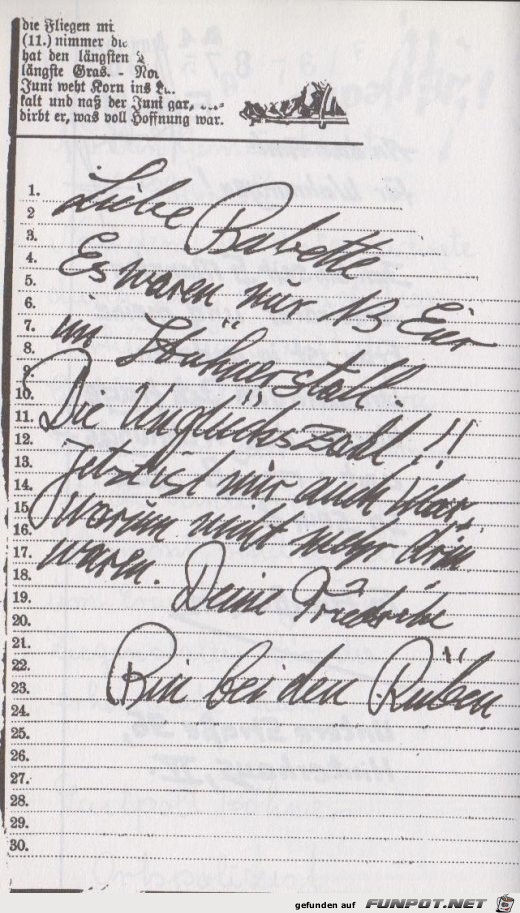 die Fliegen mi
(11.) nimmer di
hat den längsten
längste Gras. - Nor
Juni weht Korn ins
kalt und naß der Juni gar,
dirbt er, was voll Hoffnung war.
1. Liebe Babette
2
3.
4. Es waren nur 13 Eier
5.
6.
7. im Hühnerstall.
8.
9.
10. Die Unglückszahl!!
11.
12.
13. Jetzt ist mir auch klar
14.
15. warum nicht mehr drin
16.
17. waren.
18. Deine Friederike
19.
20.
21.
22. Bin bei den Rüben
23.
24.
25.
26.
27.
28.
29.
30.
Untere Straße
gefunden auf FUNPOT.NET